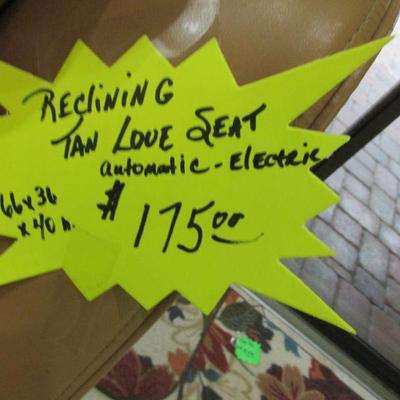 Reclining
Tan Love Seat
Automatic - Electric
66x36
x 40 h.
$175.00